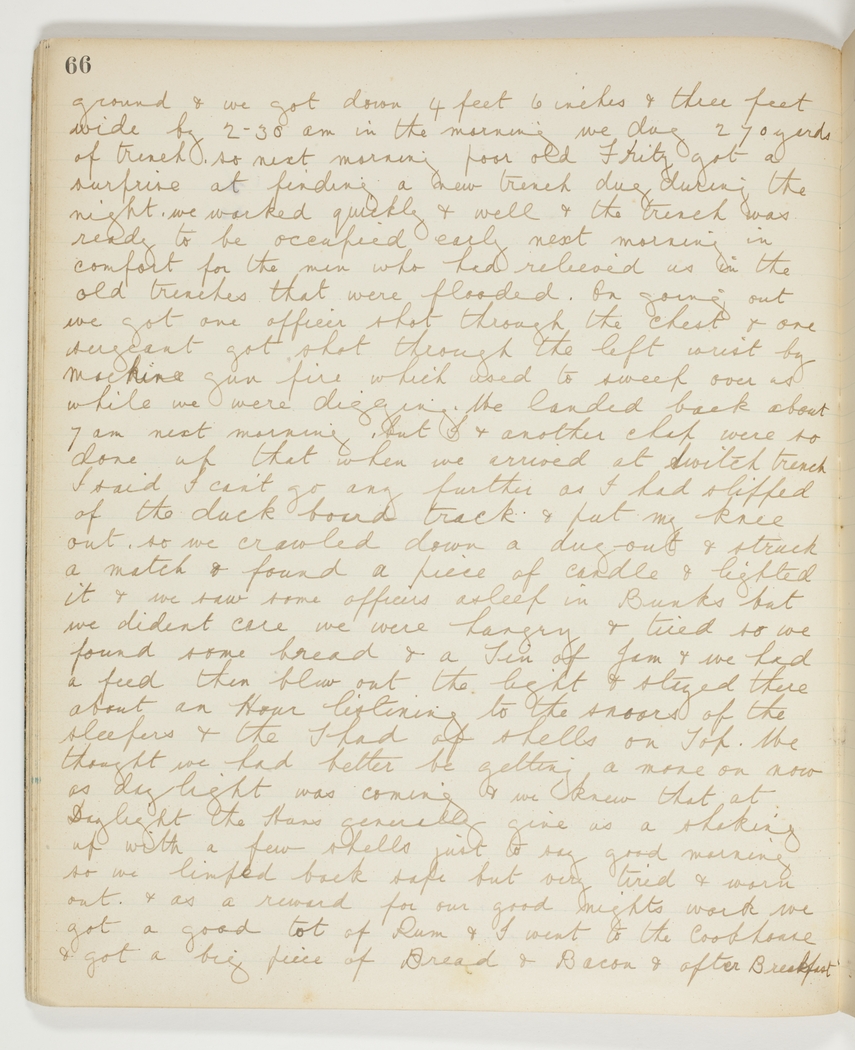 66
ground & we got down 4 feet 6 inches & three feet
wide by 2-30 am in the morning we dug 270 yards
of trench. so next morning poor old Fritz got a
surprise at finding a new trench dug during the
night. we worked quickly & well & the trench was
ready to be occupied early next morning in
comfort for the men who had relieved us in the
old trenches that were flooded. On going out
we got one officer shot through the chest & one
sergeant got shot through the left wrist by
machine gun fire which used to sweep over us
while we were digging. We landed back about
7 am next morning, but I & another chap were so
done up that when we arrived at Switch trench
I said I can't go any further as I had slipped
of the duck board track & put my knee
out. so we crawled down a dug-out & struck
a match & found a piece of candle & lighted
it & we saw some officers asleep in Bunks but
we dident care we were hungry & tired so we
found some bread & a Tin of Jam & we had
a feed then blew out the light & stayed there
about an Hour listining to the snoors of the
sleepers & the Thad of shells on Top. We
thought we had better be getting a move on now
as daylight was coming & we knew that at
Daylight the Huns generally give us a shaking
up with a few shells just to say good morning
so we limped back safe but very tired & worn
out. & as a reward for our good nights work we
got a good tot of Rum & I went to the Cookhouse
& got a big piece of Bread & Bacon & after Breakfast